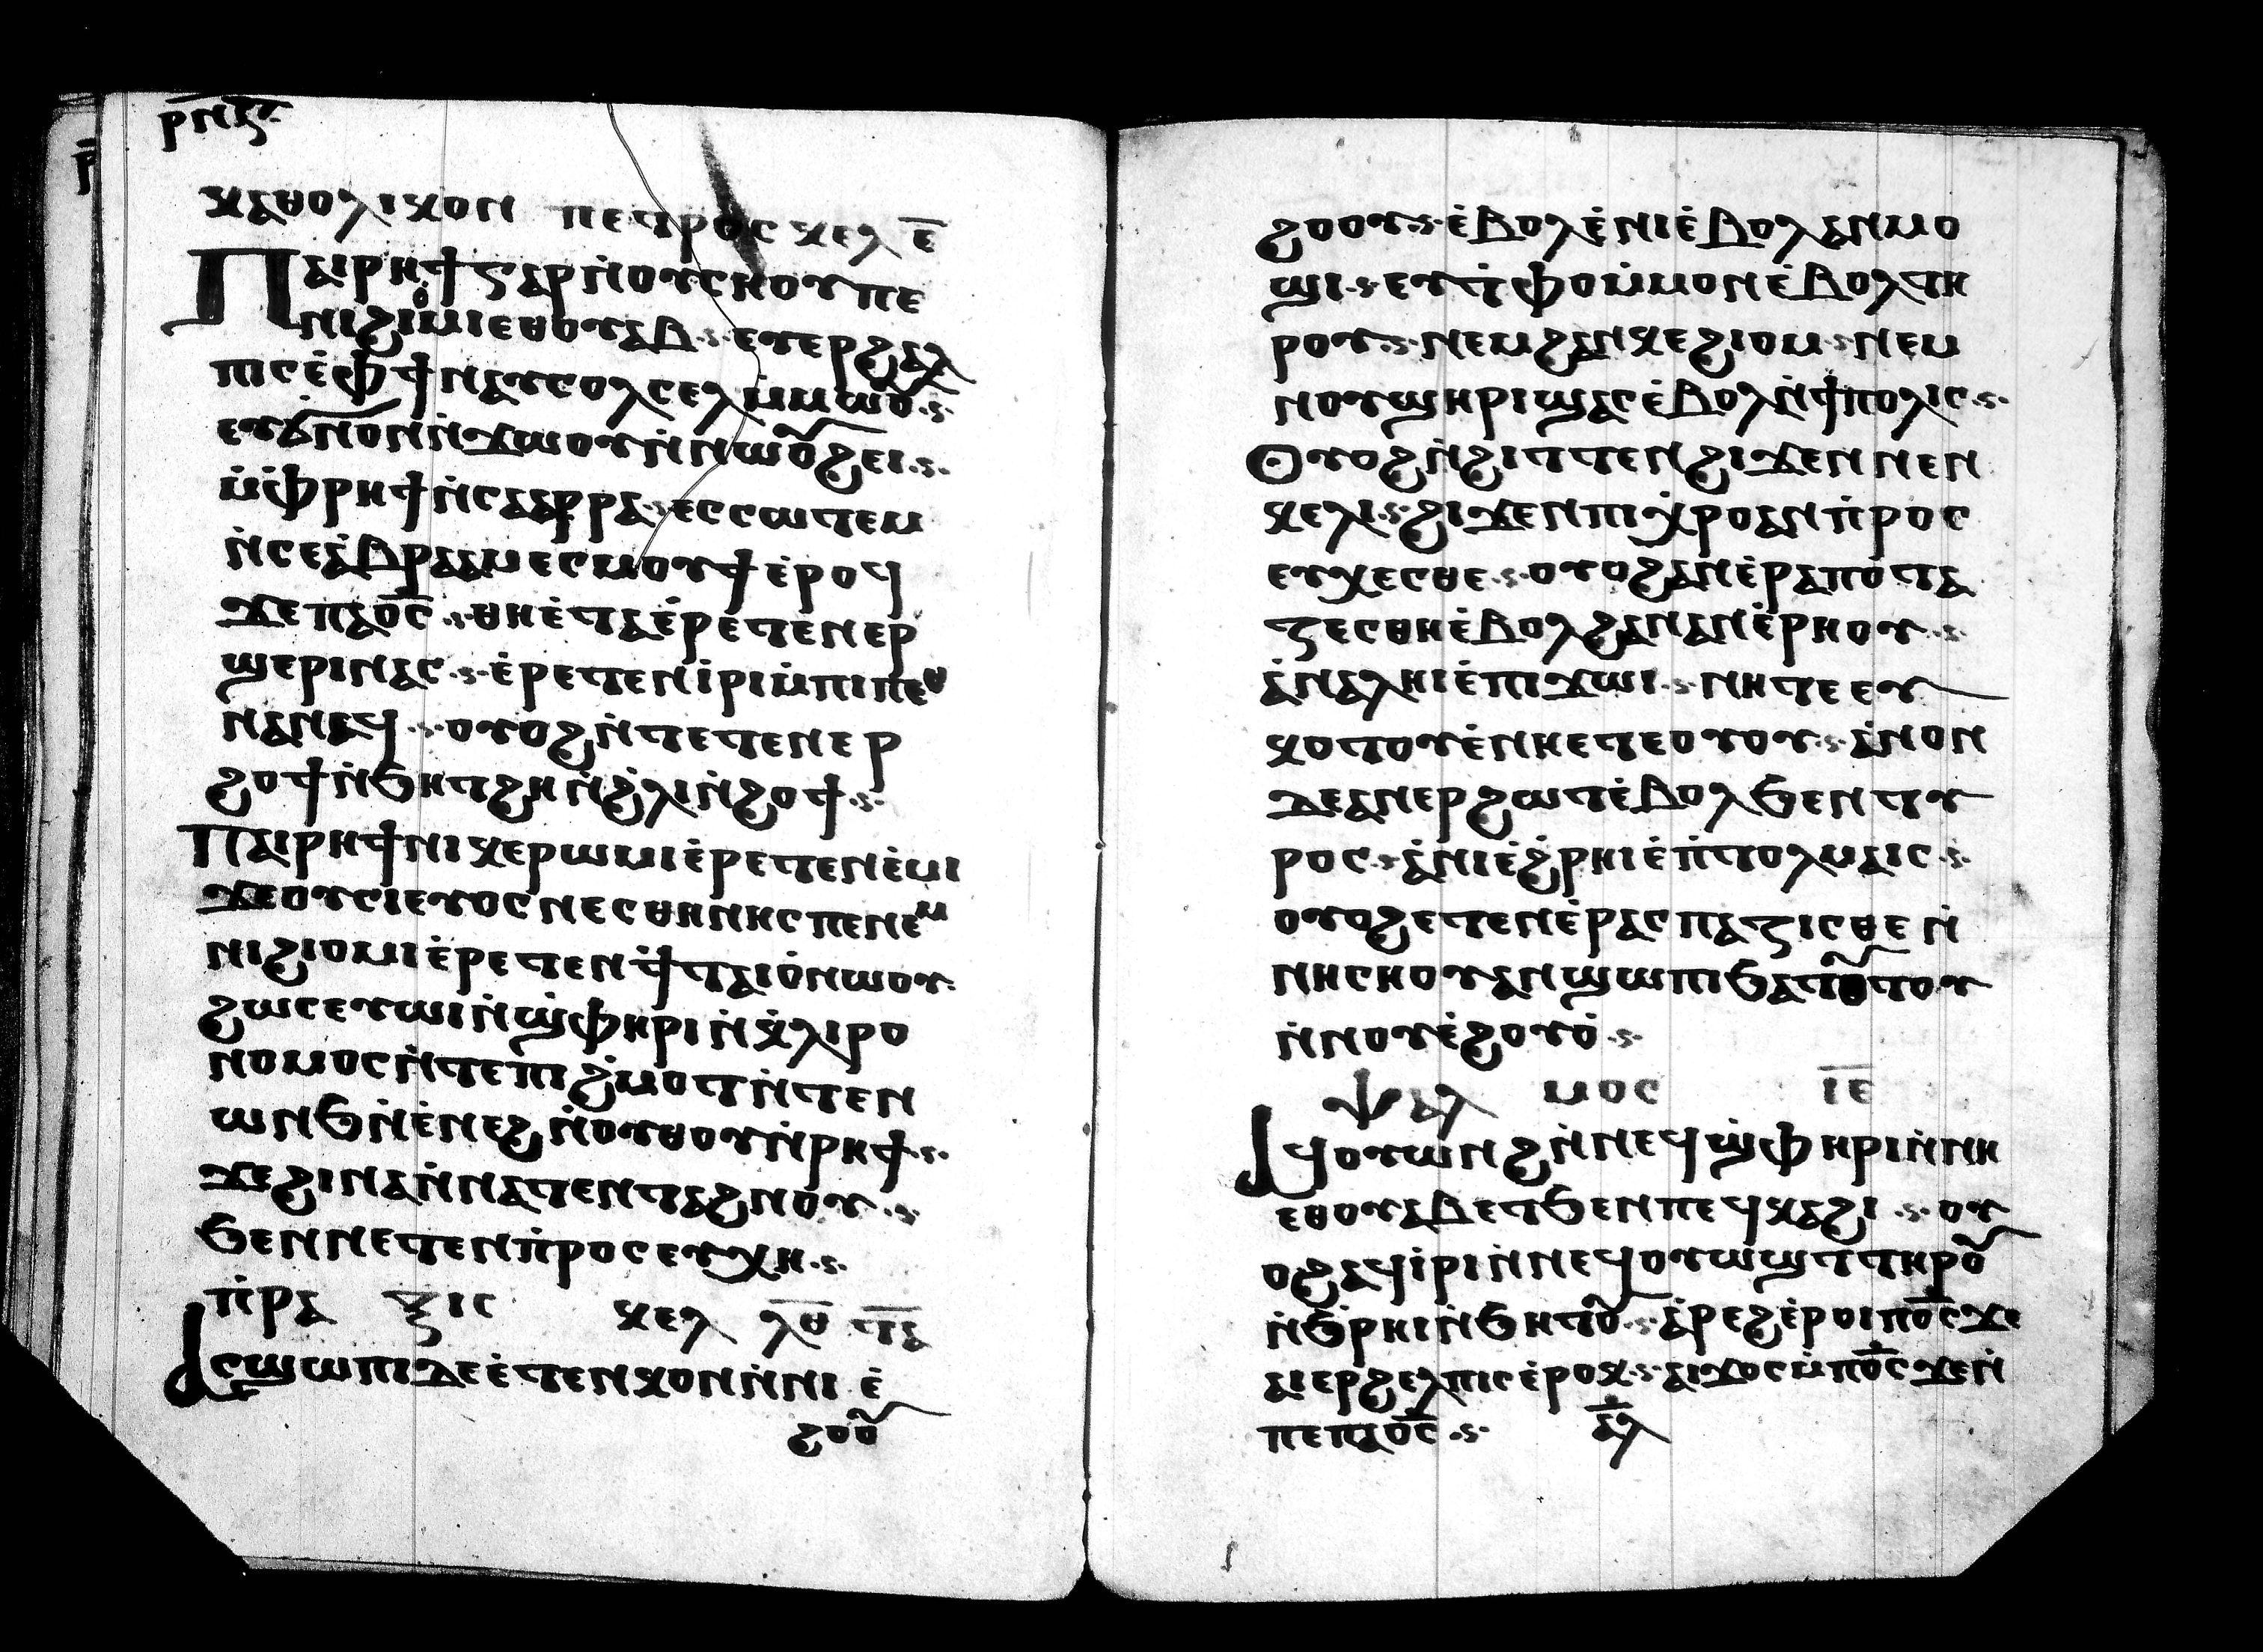 ⲣ̅ⲛ̅ⲍ̅
ⲕⲁⲑⲟⲗⲓⲕⲟⲛ ⲡⲉⲧⲣⲟⲥ ⲕⲉⲗ ⲉ̅
Ⲡⲁⲓⲣⲏϯ ⲅⲁⲣ ⲛ̇ⲟⲩⲥⲏⲟⲩ ⲡⲉ
ⲛⲓϩⲓⲟ̇ⲙⲓ ⲉⲑⲟⲩⲁⲃ ·ⲋ· ⲉⲧⲉⲣϩⲉⲗ
ⲡⲓⲥ ⲉ̇ⲫϯ ⲛⲁⲩⲥⲟⲗⲥⲉⲗ ⲙ̇ⲙⲱⲟⲩ ·ⲋ·
ⲉⲩϭⲛⲟⲛ ⲛ̇ϫⲱⲟⲩ ⲛ̇ⲛⲱⲟⲩϩⲉⲓ ·ⲋ·
ⲙ̇ⲫⲣⲏϯ ⲛ̇ⲥⲁⲣⲣⲁ ·ⲋ· ⲉⲥⲥⲱⲧⲉⲙ
ⲛ̇ⲥⲉ ⲁ̇ⲃⲣⲁⲁⲙ ⲉⲥⲙⲟⲩϯ ⲉ̇ⲣⲟϥ
ϫⲉ ⲡⲁⲟ̅ⲥ̅ ·ⲋ· ⲑⲏ ⲉ̇ⲧⲁⲉ̇ⲣⲉⲧⲉⲛⲉⲣ
ϣⲉⲣⲓ ⲛⲁⲥ ·ⲋ· ⲉ̇ⲣⲉⲧⲉⲛⲓ̇ⲣⲓ ⲙ̇ⲡⲓⲡⲉⲑ
ⲛⲁⲛⲉϥ ·ⲋ· ⲟⲩⲟϩ ⲛ̇ⲧⲉⲧⲉⲛⲉⲣ
ϩⲟϯ ⲛ̇ϧⲏⲧϩⲏ ⲛ̇ϩ̇ⲗⲓ ⲛ̇ϩⲟϯ ·ⲋ·
Ⲡⲁⲓⲣⲏϯ ⲛⲓⲕⲉⲣⲱⲙⲓ ⲉ̇ⲣⲉⲧⲉⲛⲉ̇ⲙⲓ
ϫⲉ ⲟⲩⲥⲓⲉⲩⲟⲥ ⲛⲉⲥⲑⲏⲛⲏⲥ ⲡⲉ ⲛⲉⲙ
ⲛⲓϩⲓⲟⲙⲓ ⲉ̇ⲣⲉⲧⲉⲛϯⲧⲁⲓⲟ̇ ⲛⲱⲟⲩ·
ϩⲱⲥ ⲉⲩⲱⲓ ⲛ̇ϣ̇ⲫⲏⲣⲓ ⲛ̇ⲕ̇ⲗⲓⲣⲟ
ⲛⲟⲙⲟⲥ ⲛ̇ⲧⲉ ⲡⲓϩ̇ⲙⲟⲧ ⲛ̇ⲧⲉⲛ
ⲱⲛϧ ⲛ̇ⲉ̇ⲛⲉϩ ⲛ̇ⲟⲩⲑⲟⲩ ⲛ̇ⲣⲏϯ ·ⲋ·
ϫⲉ ϩⲓⲛⲁ ⲛ̇ⲛⲁⲧⲉⲛⲧⲁϩⲛⲟⲩ ·ⲋ·
ϧⲉⲛ ⲛⲉⲧⲉⲛⲡ̇ⲣⲟⲥⲉⲩⲭⲏ ·ⲋ·
ⲡ̇ⲣⲁ ⲝⲓⲥ ⲕⲉⲗ ⲗ̅ⲑ̅ ⲧ̅ⲁ̅
Ⲁⲥϣⲱⲡⲓ ⲇⲉ ⲉ̇ⲧⲉⲛⲕⲟⲛ ⲛ̇ⲛⲓ ⲉ̇
ϩⲟⲟⲩ
ϩⲟⲟⲩ ·ⲋ· ⲉ̇ⲃⲟⲗ ⲉ̇ⲛⲓ ⲉ̇ⲃⲟⲗ ⲁⲛⲙⲟ
ϣⲓ ·ⲋ· ⲉⲩⲧ̇ⲫⲟ ⲙ̇ⲙⲟⲛ ⲉ̇ⲃⲟⲗ ⲧⲏ
ⲣⲟⲩ ·ⲋ· ⲛⲉⲙ ϩⲁⲛⲕⲉϩⲓⲟⲙ ·ⲋ· ⲛⲉⲙ
ⲛⲟⲩϣⲏⲣⲓ ϣⲁⲥⲉ̇ⲃⲟⲗ ⲛ̇ϯⲡⲟⲗⲓⲥ ·ⲋ·
Ⲟⲩⲟϩ ⲛ̇ϩⲓⲧⲧⲉⲛ ϩⲓϫⲉⲛ ⲛⲉⲛ
ⲕⲉⲗⲓ ·ⲋ· ϩⲓϫⲉⲛ ⲡⲓⲭ̇ⲣⲟ ⲁⲛⲡ̇ⲣⲟⲥ
ⲉⲩⲭⲉⲥⲑⲉ ·ⲋ· ⲟⲩⲟϩ ⲁⲛⲉ̇ⲣⲁⲡⲟⲧⲁ
ⲍⲉⲥⲑⲏ ⲉ̇ⲃⲟⲗ ϩⲁⲛⲁⲛⲉ̇ⲣⲏⲟⲩ ·ⲋ·
ⲁ̇ⲛⲁⲗⲏⲓ ⲉ̇ⲡⲓϫⲱⲓ ·ⲋ· ⲛⲏ ⲧⲉ ⲉⲩ
ⲕⲟⲧⲟⲩ ⲉ̇ⲛⲏ ⲉⲧⲉⲟⲩⲟⲩ ·ⲋ· ⲁ̇ⲛⲟⲛ
ⲇⲉ ⲁⲛⲉⲣϩⲱⲧ ⲉ̇ⲃⲟⲗ ϧⲉⲛ ⲧⲩ
ⲣⲟⲥ ·ⲋ· ⲁ̇ⲛⲓ ⲉ̇ϩ̇ⲣⲏⲓ ⲉ̇ⲡ̇ⲧⲟⲗⲙⲁⲓⲥ ·ⲋ·
ⲟⲩⲟϩ ⲉⲧⲉⲛⲉ̇ⲣⲁⲥⲡⲁⲍⲓⲥⲑⲉ ⲛ̇
ⲛⲏⲥⲏⲟⲩ ⲁⲛϣⲱⲡⲓ ϧⲁⲧⲟⲩⲧⲟⲩ
ⲛ̇ⲛⲟⲩⲉ̇ϩⲟⲟⲩ ·ⲋ·
ⲯⲁⲗ ⲙⲟⲥ ⲓ̅ⲉ̅
Ⲁϥⲟⲩⲱⲛϩ ⲛ̇ⲛⲉϥϣ̇ⲫⲏⲣⲓ ⲛ̇ⲛⲏ
ⲉⲑⲟⲩⲁⲃ ⲉⲧϧⲉⲛ ⲡⲉϥⲕⲁϩⲓ ·ⲋ· ⲟⲩ
ⲟϩ ⲁϥⲓ̇ⲣⲓ ⲛ̇ⲛⲉϥⲟⲩⲱϣ ⲧⲧⲏⲣⲟⲩ
ⲛ̇ϧ̇ⲣⲏⲓ ⲛ̇ϧⲏⲧⲟⲩ ·ⲋ· ⲁ̇ⲣⲉϩ ⲉ̇ⲣⲟⲓ ⲡⲟ̅ⲥ̅ ϫⲉ
ⲁⲓⲉⲣϩⲉⲗⲡⲓⲥ ⲉ̇ⲣⲟⲕ ·ⲋ· ⲁⲓϫⲟⲥ ⲙ̇ⲡⲟ̅ⲥ̅ ϫⲉ ⲛ̇
ⲡⲉ ⲡⲁⲟ̅ⲥ̅ ·ⲋ· ⲁ̅ⲗ̅